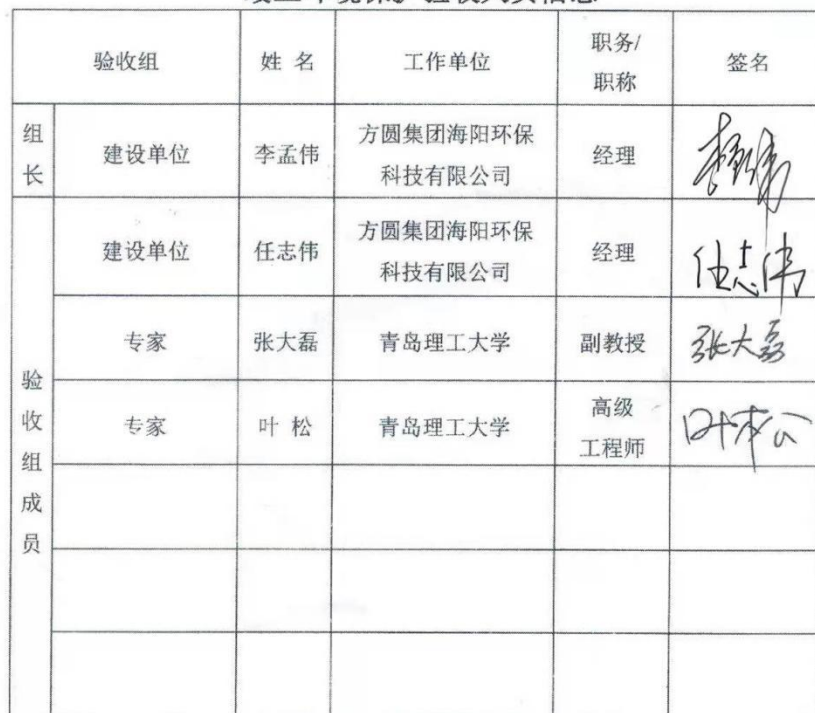 验收组 姓 名 工作单位 职务/职称 签名
组长 建设单位 李孟伟 方圆集团海阳环保科技有限公司 经理
验收组成员
建设单位 任志伟 方圆集团海阳环保科技有限公司 经理 任志伟
专家 张大磊 青岛理工大学 副教授 张大磊
专家 叶 松 青岛理工大学 高级工程师 叶松